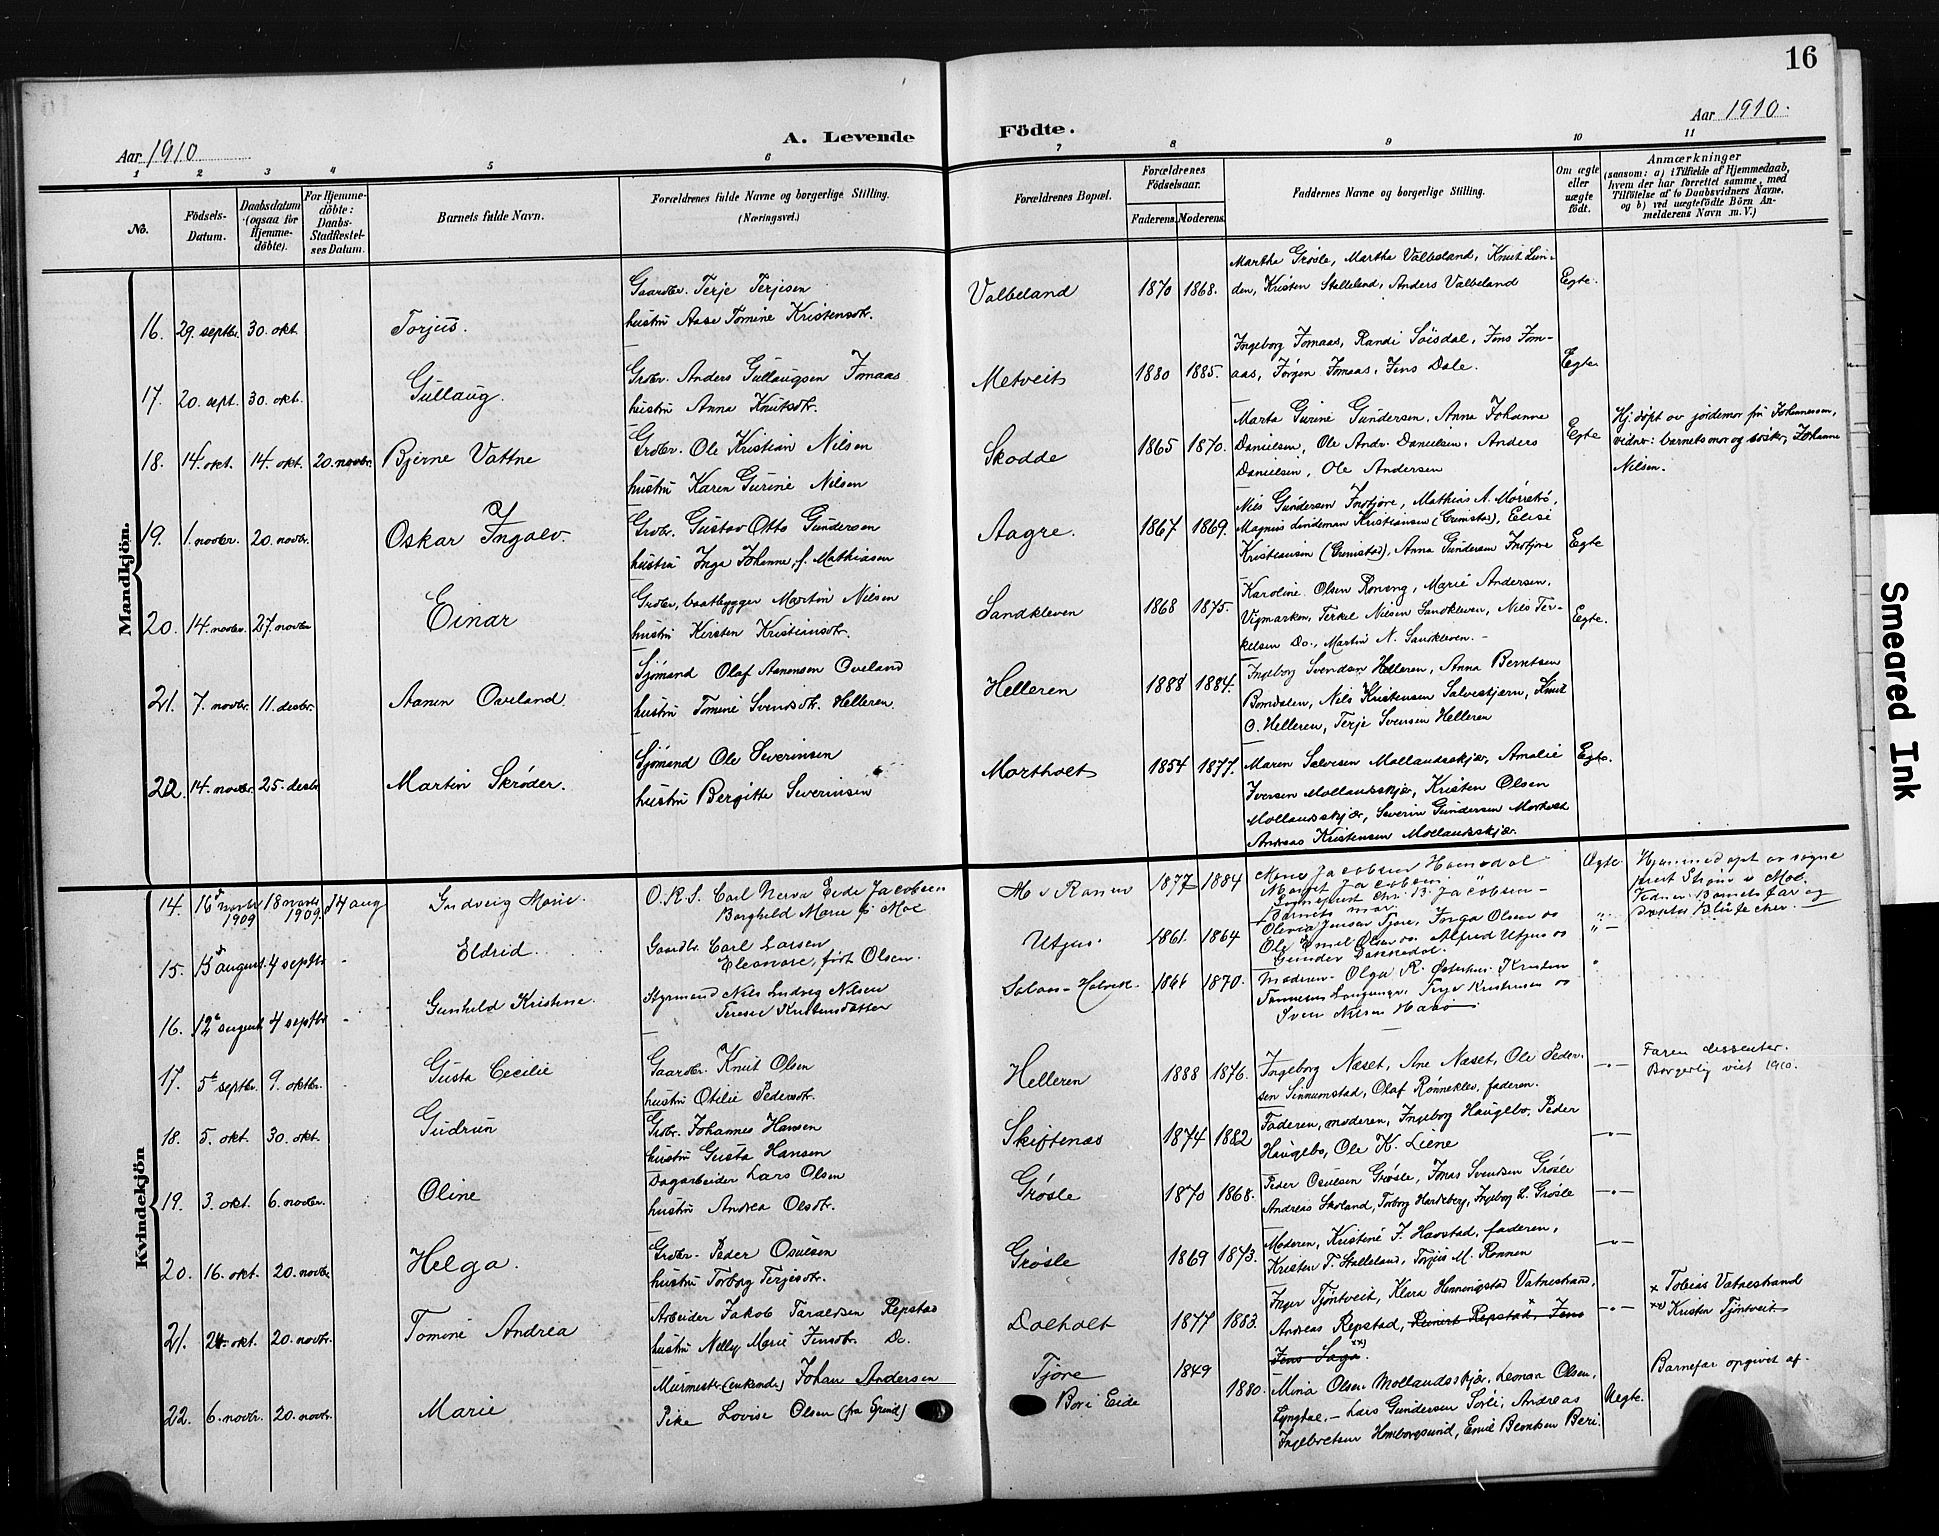 16
Aar 1910
A. Levende Födte.
Aar 1910.
1 2 3 4 5 6 7 8 9 10 11
No.
Födsels-Datum.
Daabsdatum (ogsaa för Hjemmedöbte).
For Hjemmedöbte: Daabs-Stadfæstelses Datum.
Barnets fulde Navn.
Forældrenes fulde Navne og borgerlige Stilling. (Næringsvei.)
Forældrenes Bopæl.
Forældrenes Födselsaar.
Faderens. Moderens.
Faddernes Navne og borgerlige Stilling.
Om ægte eller uægte födt.
Anmærkninger
(saasom: a) i Tilfælde af Hjemmedaab, hvem der har forrettet samme, med Tilföielse af to Daabsvidners Navne, og b) ved uægtefödte Börn Anmelderens Navn m. V.)
Mandkjön.
16. 29. septbr. 30. okt. Torjus.
Gaardbr. Terje Terjesen
hustru Aase Tomine Kristensdtr.
Valbeland 1870 1868.
Martha Grøsle, Martha Valbeland, Knut Lin-
den, Kristen Stalleland, Anders Valbeland
Egte.
17. 20. sept. 30. okt. Gullaug.
Grdbr. Anders Gullaugsen Fomaas
hustru Anna Knutsdtr.
Metveit 1880 1885.
Ingeborg Fomaas, Randi Søisdal, Jens Fom-
aas, Jørgen Fomaas, Jens Dale.
Egte
18. 14. okt. 14. okt. 20. novbr. Bjerne Vattne
Grdbr. Ole Kristian Nilsen
hustru Karen Gurine Nilsen
Skodde 1865 1870.
Marta Gurine Gundersen, Anna Johanne
Danielsen, Ole Andr. Danielsen, Anders
Danielsen, Ole Andersen
Egte
Hj.døpt av jordemor fru Johannessen,
vidner: barnets mor og søster, Johanne
Nilsen.
19. 1. novbr. 20. novbr. Oskar Ingolv.
Grdbr. Gustav Otto Gundersen
hustru Inga Johanne, f. Mathiasen
Aagre. 1867 1869.
Nils Gundersen Indtjøre, Mathias A. Morretrø,
Magnus Lindeman Kristiansen (Grimstad), Elise
Kristiansen (Grimstad), Anna Gundersen Indtjøre
Egte
20. 14. novbr. 27. novbr Einar
Grdbr, baatbygger Martin Nilsen
hustru Kirsten Kristiansdtr.
Sandkleven 1868 1875.
Karoline Olsen Roneng, Marie Andersen,
Vigmarken, Terkel Nilsen Sandkleven, Nils Ter-
kelsen Do., Martin N. Sandkleven. -
Egte.
21. 7. novbr. 11. desbr. Aanen Oveland
Sjømand Olaf Aanensen Oveland
hustru Tomine Svendsdtr. Helleren.
Helleren 1888 1884.
Ingeborg Svendsen Helleren, Anna Berntsen
Bomdalen, Nils Kristensen Salvestjern, Knut
O. Helleren, Terje Svensen Helleren
22. 14. novbr. 25. desbr. Martin Skrøder.
Sjømand Ole Severinsen
hustru Bergitte Severinsen
Mortholt 1854 1877.
Maren Salvesen Mollandsskjær, Amalie
Iversen Mollandsskjær, Kristen Olsen
Mollandsskjær, Severin Gundersen Mortholt
Andreas Kristensen Mollandsskjær.
Egte.
Kvindekjön
14. 16d novbr 1909 18 novbr 1909. 14 aug Ludvig Marie.
O.R.S. Carl Nerva Eide Jacobsen
Borghild Marie f. Moe
1877 1884
Marie Jacobsen
Margit Jacobsen
Barnets mor.
Ægte
Hjemmedøpt av sogne
prest Strøm v Moe.
Barnets far og
15. 15d august. 4 septbr - Eldrid.
Gaardbr Carl Larsen
Eleonore, født Olsen.
Utgus. 1861. 1864
Olivia Jensen Tjore, Inga Olsen og
Ole Emil Olsen og Alfred Utgus og
Gunder Dannedal.
" -
16. 12d august 4 septbr - Gunhild Kristine.
Styrmand Nils Ludvig Nilsen
Terese Kristensdatter
1866 1870.
Moderen - Olga R. Kristen
Terje Kristensen og
Sven Nilsen
"
17. 5te septbr. 9. oktbr. Gusta Cecilie
Gaardbr. Knut Olsen
hustru Otilie Pedersdtr.
Helleren 1888 1876.
Ingeborg Næset, Ane Næset, Ole Peder-
sen Sinnumstad, Olaf Rønneklev, faderen.
- " -
Faren dissenter.
Borgerlig viet 1910.
18. 5. okt. 30. okt. Gudrun
Grdbr. Johannes Hansen
hustru Gusta Hansen
Skiftenes 1874 1882
Faderen, moderen, Ingeborg Haugebo, Peder
Haugebo, Ole K. Liene
- " -
19. 3. okt. 6. novbr. Oline
Dagarbeider Lars Olsen
hustru Andrea Olsdtr.
Grøsle 1870 1868.
Peder Osulsen Grøsle, Jonas Svendsen Grøsle
Andreas Skoland, Torborg Hardeberg, Ingeborg L. Grøsle
- " -
20. 16. okt. 20. novbr. Helga.
Grdbr. Peder Osulsen
hustru Torborg Terjesdtr.
Grøsle 1869 1873.
Moderen, Kristine J. Havstad, faderen,
Kristen T. Stalleland, Torjus M. Ronnen
- " -
21. 24. okt. 20. novbr. Tomine Andrea
Arbeider Jakob Taraldsen Repstad
hustru Nelly Marie Jensdtr. Do.
Dalholt 1877 1883.
Inger Tjøntveit, Klara Henningstad Vatnestrand,
Andreas Repstad, Reinert Repstad x, Jens
Jens Saga xx).
- " -
x Tobias Vatnestrand
xx) Kristen Tjøntveit
22. 6. novbr. 20. novbr. Marie
Murmester (enkemd.) Johan Andersen
Pike Lovise Olsen (fra Grund)
Tjore 1849
Bori Eide 1880.
Mina Olsen Mollandsskjær, Leonna Olsen,
Lyngdal. - Lars Gundersen Sørli, Andreas
Ingebretsen Homborgsund, Emil Berntsen Beri.
Uegte.
Barnefar opgivet af.
Smeared Ink